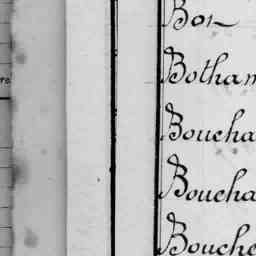 Bos
Botham
Boucha
Boucha
Bouche